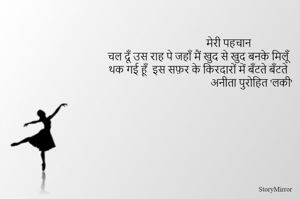 मेरी पहचान
चल दूँ उस राह पे जहाँ मैं खुद से खुद बनके मिलूँ
थक गई हूँ इस सफ़र के किरदारों में बँटते बँटते
अनीता पुरोहित 'लकी'
StoryMirror